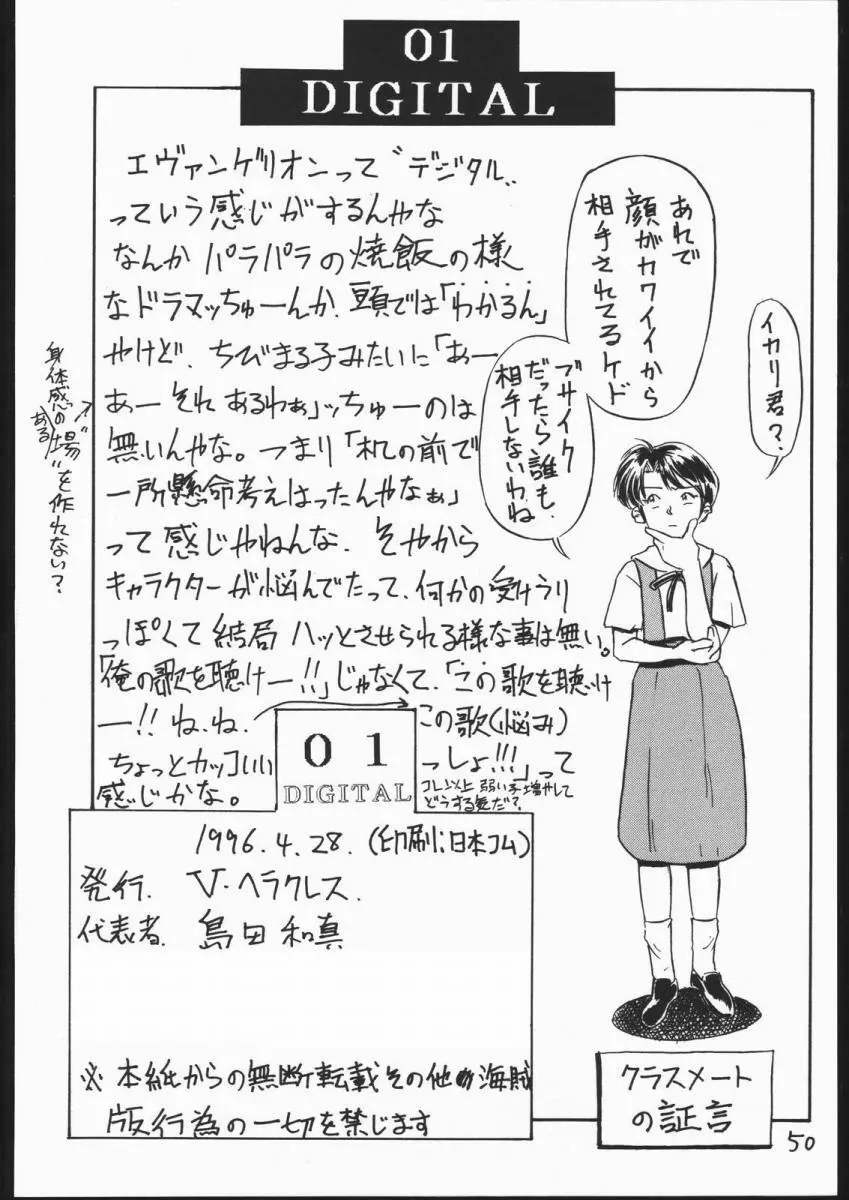 01
DIGITAL
エヴァンゲリオンって〝デジタル〟
っていう感じがするんやな
なんかパラパラの焼飯の様
なドラマッちゅーんか、頭では「わかるん」
やけど、ちびまる子みたいに「あぁー
あー それ あるわぁ」ッちゅーのは
無いんやな。つまり「机の前で
一所懸命考えはったんやなぁ」
って感じやねんな、そやから
キャラクターが悩んでたって、何かの受けうり
っぽくて結局 ハッとさせられる様な事は無い。
「俺の歌を聴けー!!」じゃなくて、「この歌を聴け
ー!!ね、ね、この歌(悩み)
ちょっとカッコいいっしょ!!!」って
感じかな。
コレ以上弱い子増やして
どうする気だ?
身体感の
ある
〝場〟を作れない?
あれで
顔がカワイイから
相手されてるケド
ブサイク
だったら誰も
相手しないわね
イカリ君?
01
DIGITAL
1996.4.28.(印刷;日本コム)
発行. V・ヘラクレス.
代表者. 島田和真
※本紙からの無断転載その他の海賊
版行為の一切を禁じます
クラスメート
の証言
50